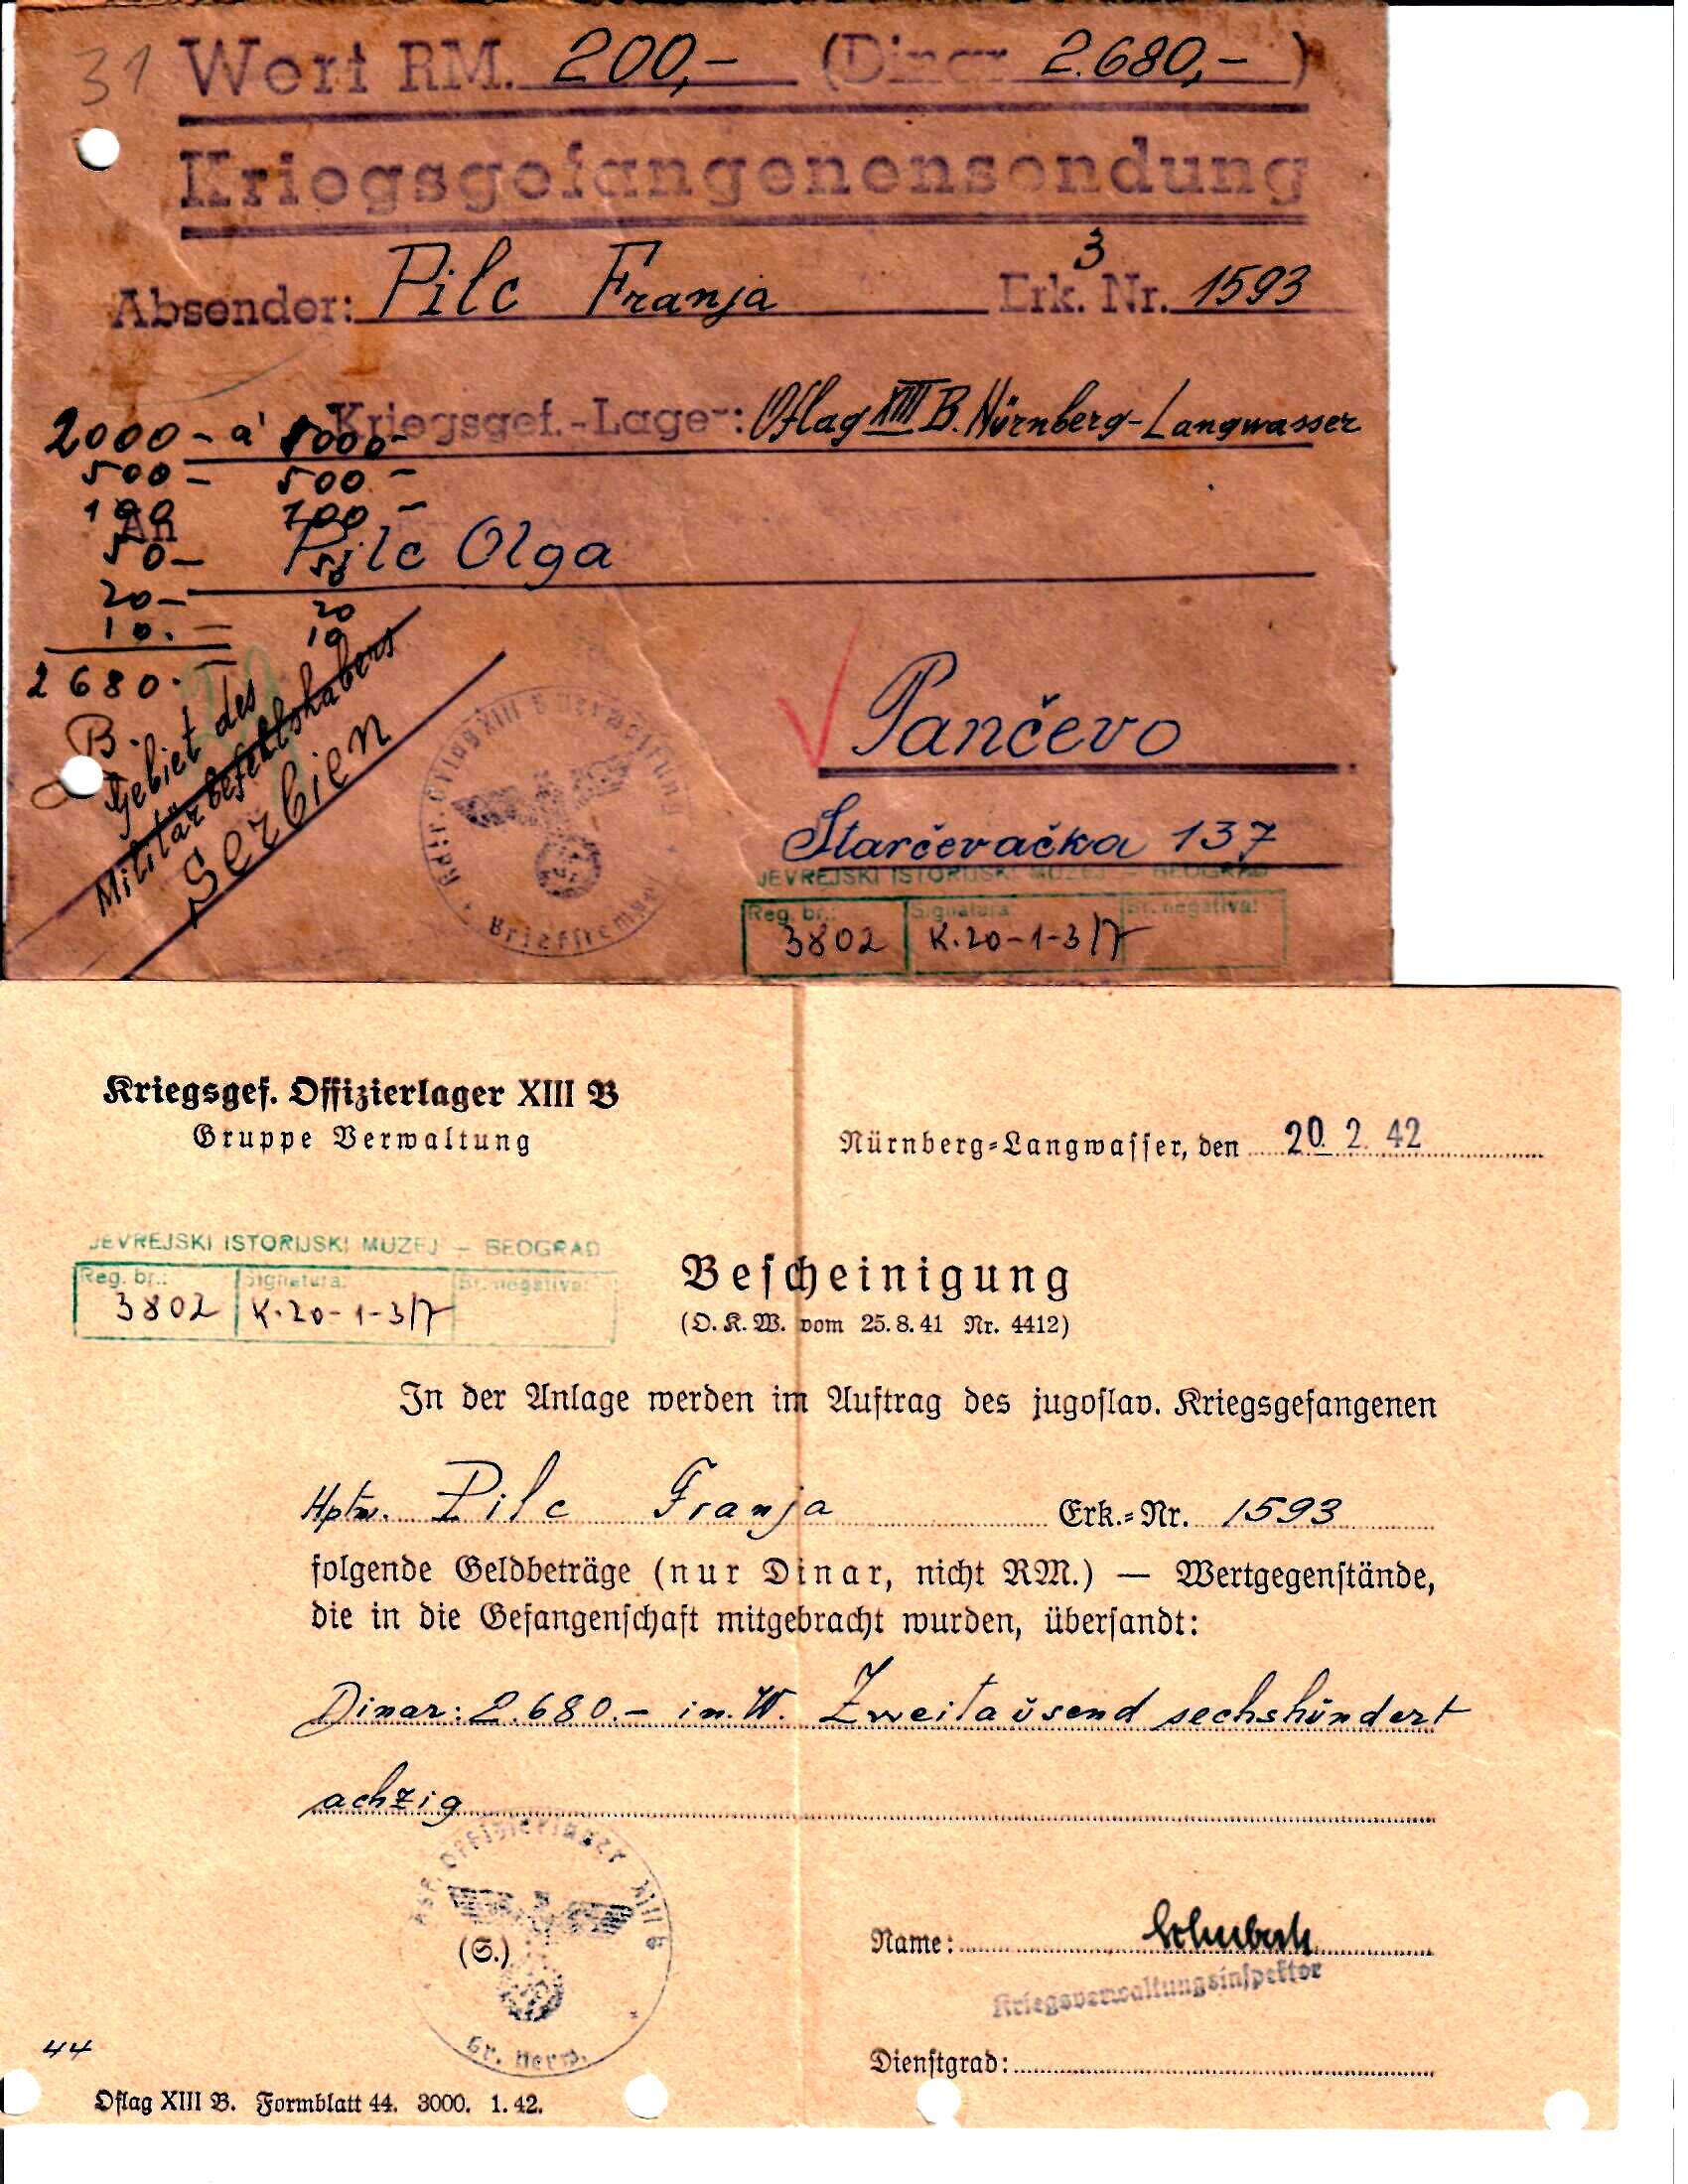 31 Wert RM. 200,- (Dinar 2.680,-)
Kriegsgefangenensendung
3
Absender: Pilc Franja Erk. Nr. 1593
Kriegsgef.-Lager: Oflag XIII B. Nürnberg-Langwasser
2000 - a' 1000 -
500 - 500 -
100 100 -
An
50 - 50
Pilc Olga
20 - 20
10. - 10
2680.-
B.
Gebiet des
Militärbefehlshabers
Serbien
Pančevo
Starčevačka 137
Oflag XIII B Verwaltung
Briefstempel
JEVREJSKI ISTORIJSKI MUZEJ - BEOGRAD
Reg. br.: Signatura: Br. negativa:
3802 K.20-1-3/7
Kriegsgef. Offizierlager XIII B
Gruppe Verwaltung
Nürnberg-Langwasser, den 20. 2. 42
JEVREJSKI ISTORIJSKI MUZEJ - BEOGRAD
Reg. br.: Signatura: Br. negativa:
3802 K.20-1-3/7
Bescheinigung
(O.K.W. vom 25.8.41 Nr. 4412)
In der Anlage werden im Auftrag des jugoslav. Kriegsgefangenen
Hptm. Pilc Franja Erk.-Nr. 1593
folgende Geldbeträge (nur Dinar, nicht RM.) — Wertgegenstände,
die in die Gefangenschaft mitgebracht wurden, übersandt:
Dinar: 2.680.- in W. Zweitausend sechshundert
achzig
Offizierlager XIII B
(S.)
Gr. Verw.
Name:
Kriegsverwaltungsinspektor
Dienstgrad:
44
Oflag XIII B. Formblatt 44. 3000. 1. 42.